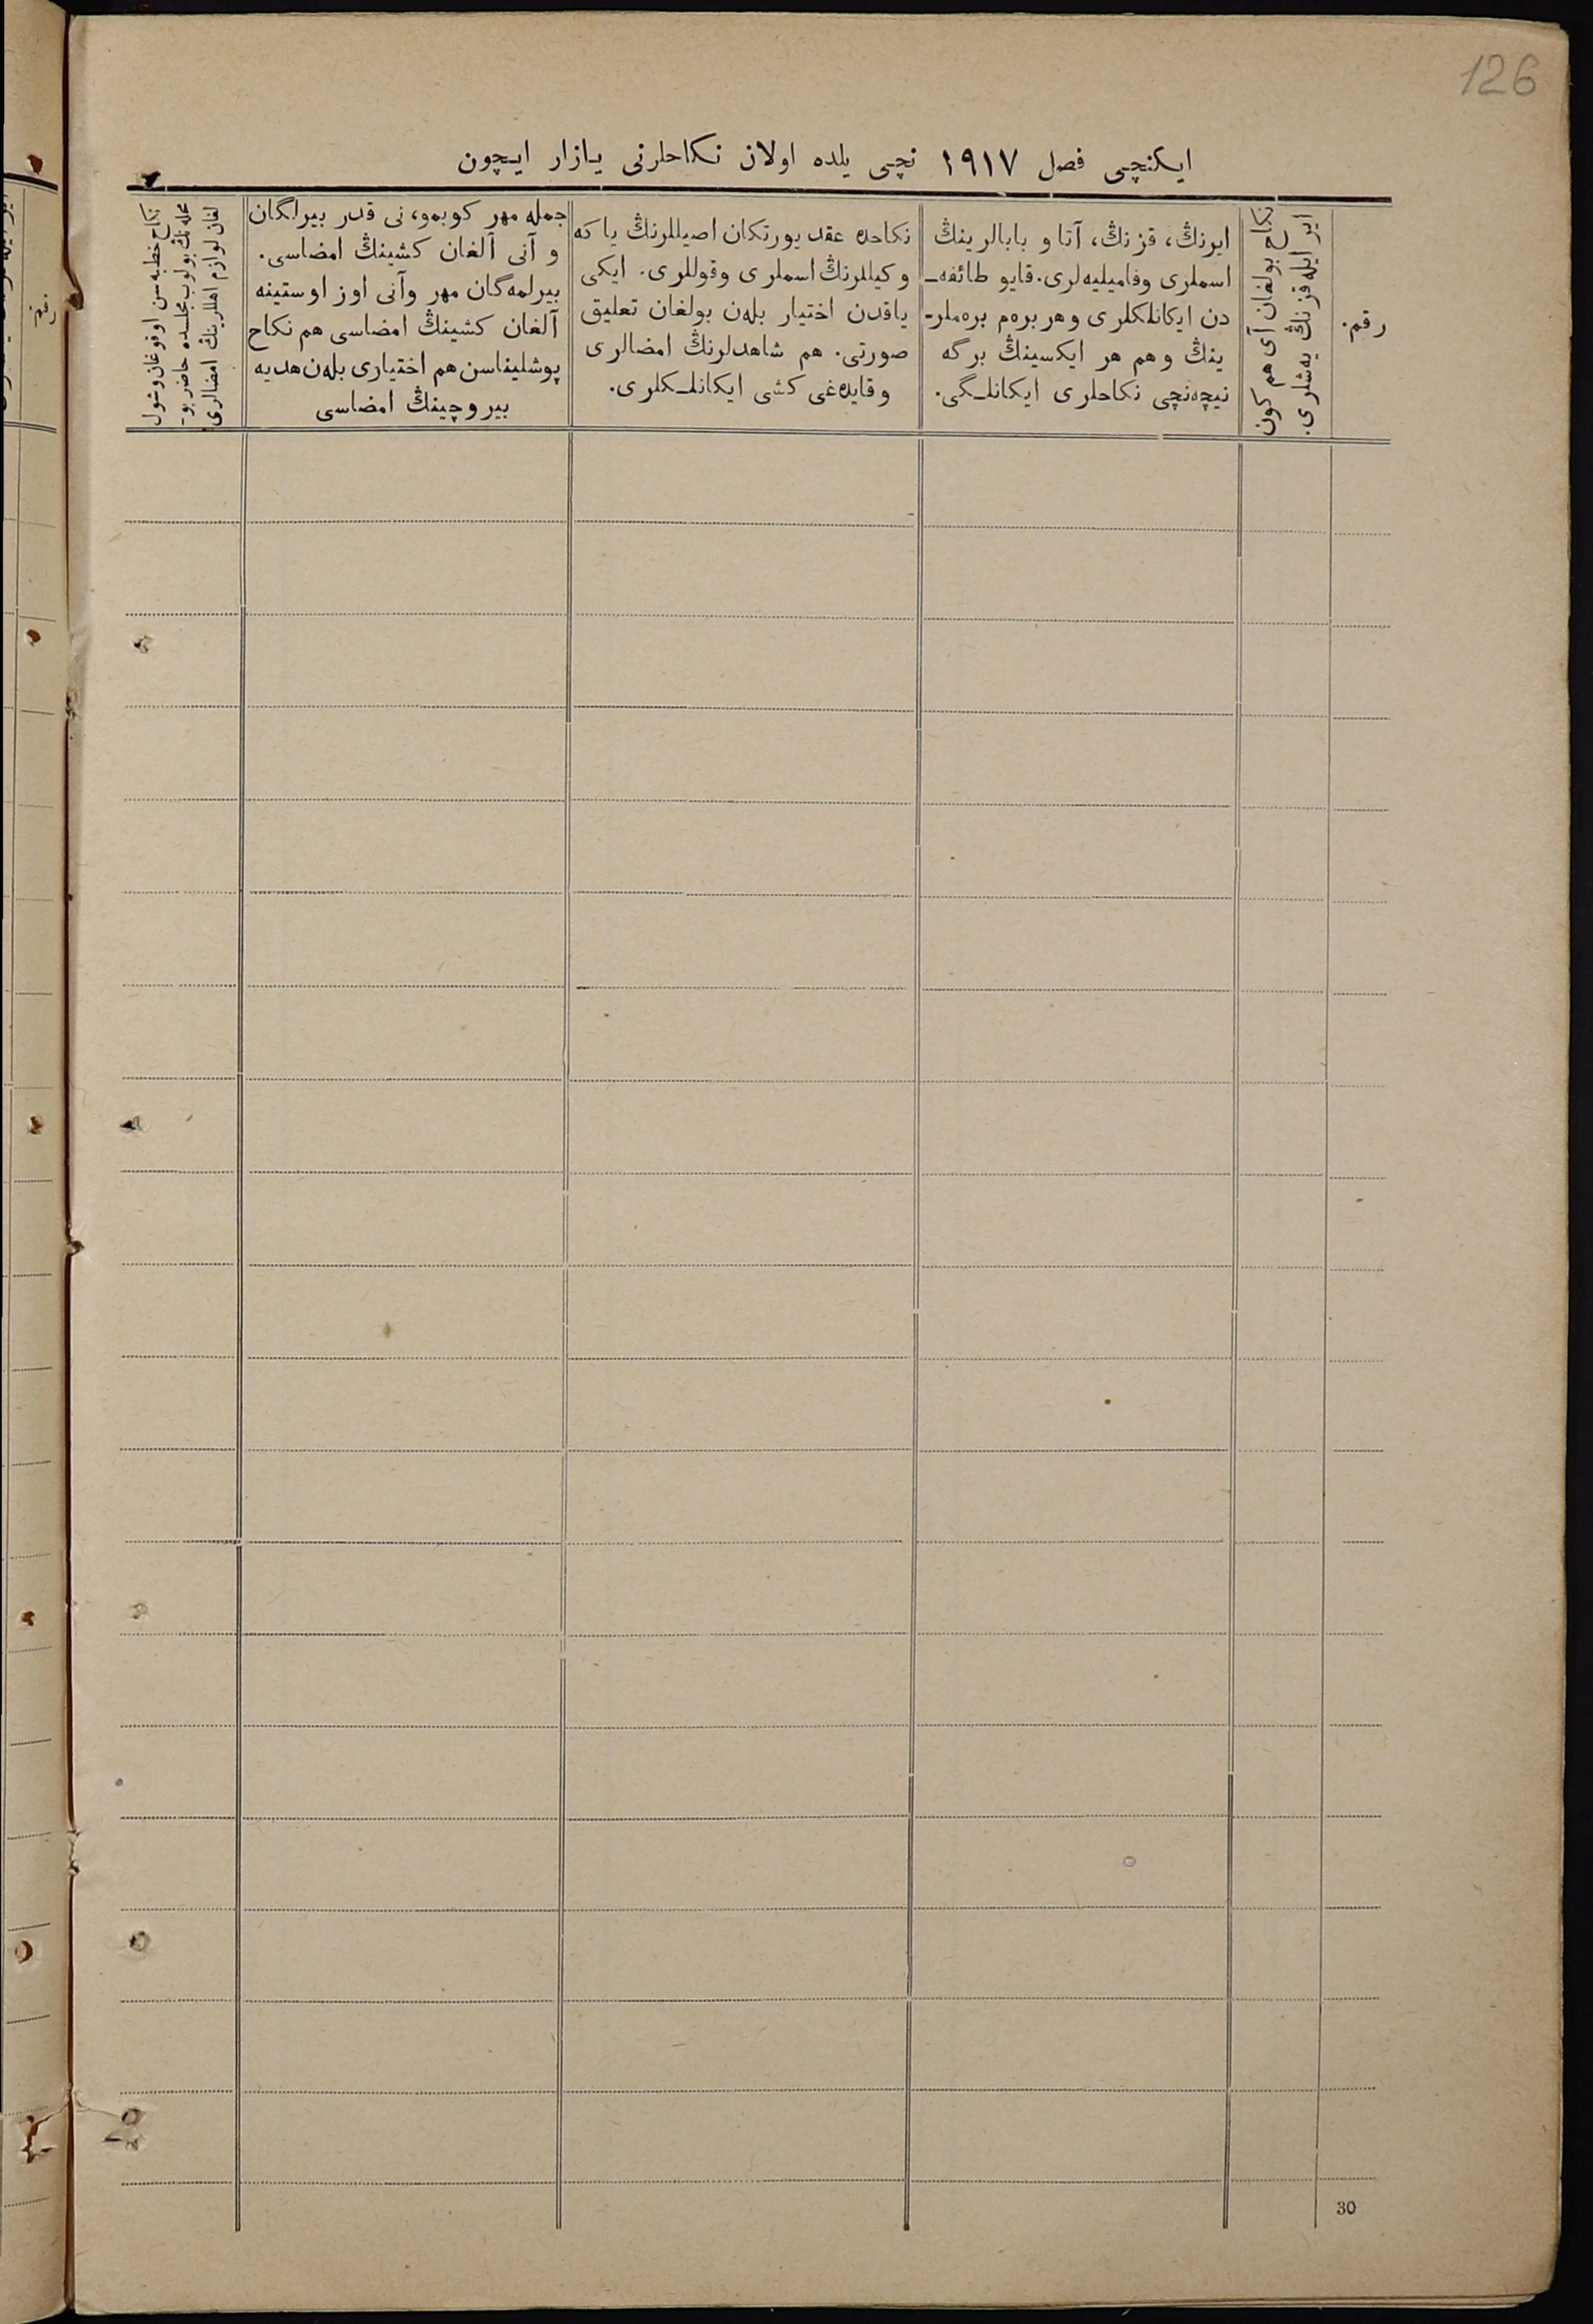 126
ایکنچی فصل ۱۹۱۷ نچی یلده اولان نکاحلرنی یازار ایچون
رقم.
نکاح بولغان آی هم کون
ایر ایله قزنڭ یه‌شلری.
ایرنڭ، قزنڭ، آتا و بابالرینڭ
اسملری وفامیلیه‌لری. قایو طائفه‌ـ
دن ایکانلکلری وهر بره‌م بره‌ملرـ
ینڭ وهم هر ایکسینڭ برگه
نیچه‌نچی نکاحلری ایکانلـگی.
نکاحده عقد یورتکان اصیللرنڭ یا که
وکیللرنڭ اسملری وقوللری. ایکی
یاقدن اختیار بله‌ن بولغان تعلیق
صورتی. هم شاهدلرنڭ امضالری
وقایده‌غی کشی ایکانلـکلری.
جمله مهر کوبمو، نی قدر بیرلگان
و آنی آلغان کشینڭ امضاسی.
بیرلمه‌گان مهر وآنی اوز اوستینه
آلغان کشینڭ امضاسی هم نکاح
پوشلیناسن هم اختیاری بله‌ن هدیه
بیروچینڭ امضاسی
نکاح خطبه‌سن اوقوغان وشول
محله‌نڭ بولوب مجلسده حاضر بوـ
لغان لوازم اهللرینڭ امضالری
رقم
30